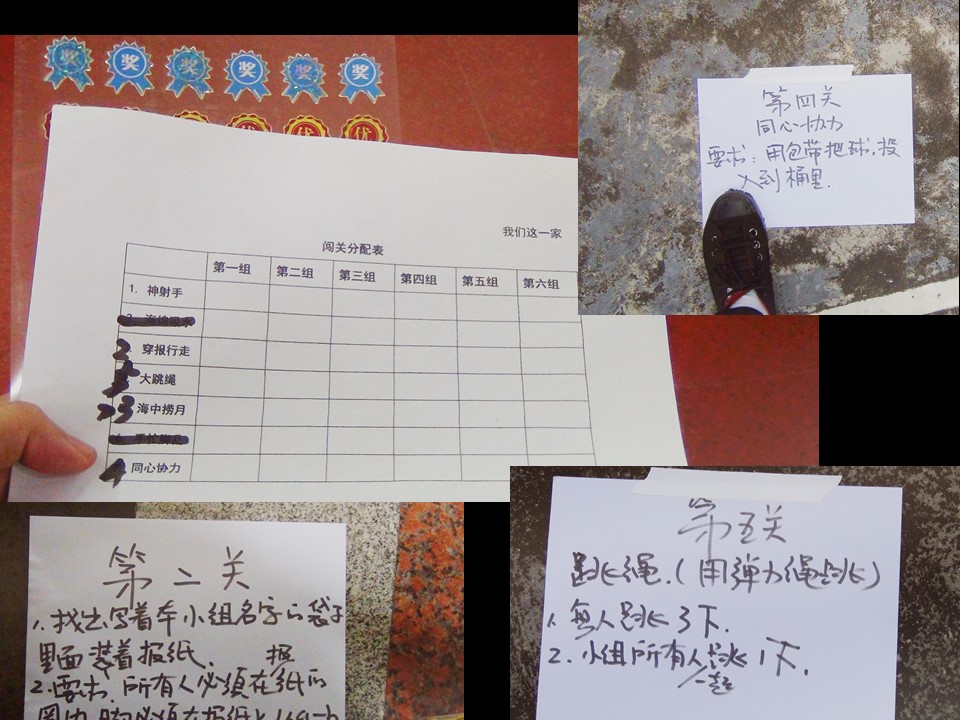 奖 奖 奖 奖 奖 奖
优 优 优
我们这一家
闯关分配表
第一组 第二组 第三组 第四组 第五组 第六组
1. 神射手
2 穿报行走
5 大跳绳
3 海中捞月
4 同心协力
第四关
同心协力
要求：用包带把球，投
入到桶里．
第二关
1. 找出写着本小组名字的袋子
里面装着报纸． 报
2. 要求．所有人必须在纸的
第五关
跳绳．（用弹力绳跳）
1、每人跳3下．
2. 小组所有人跳1下．
一起